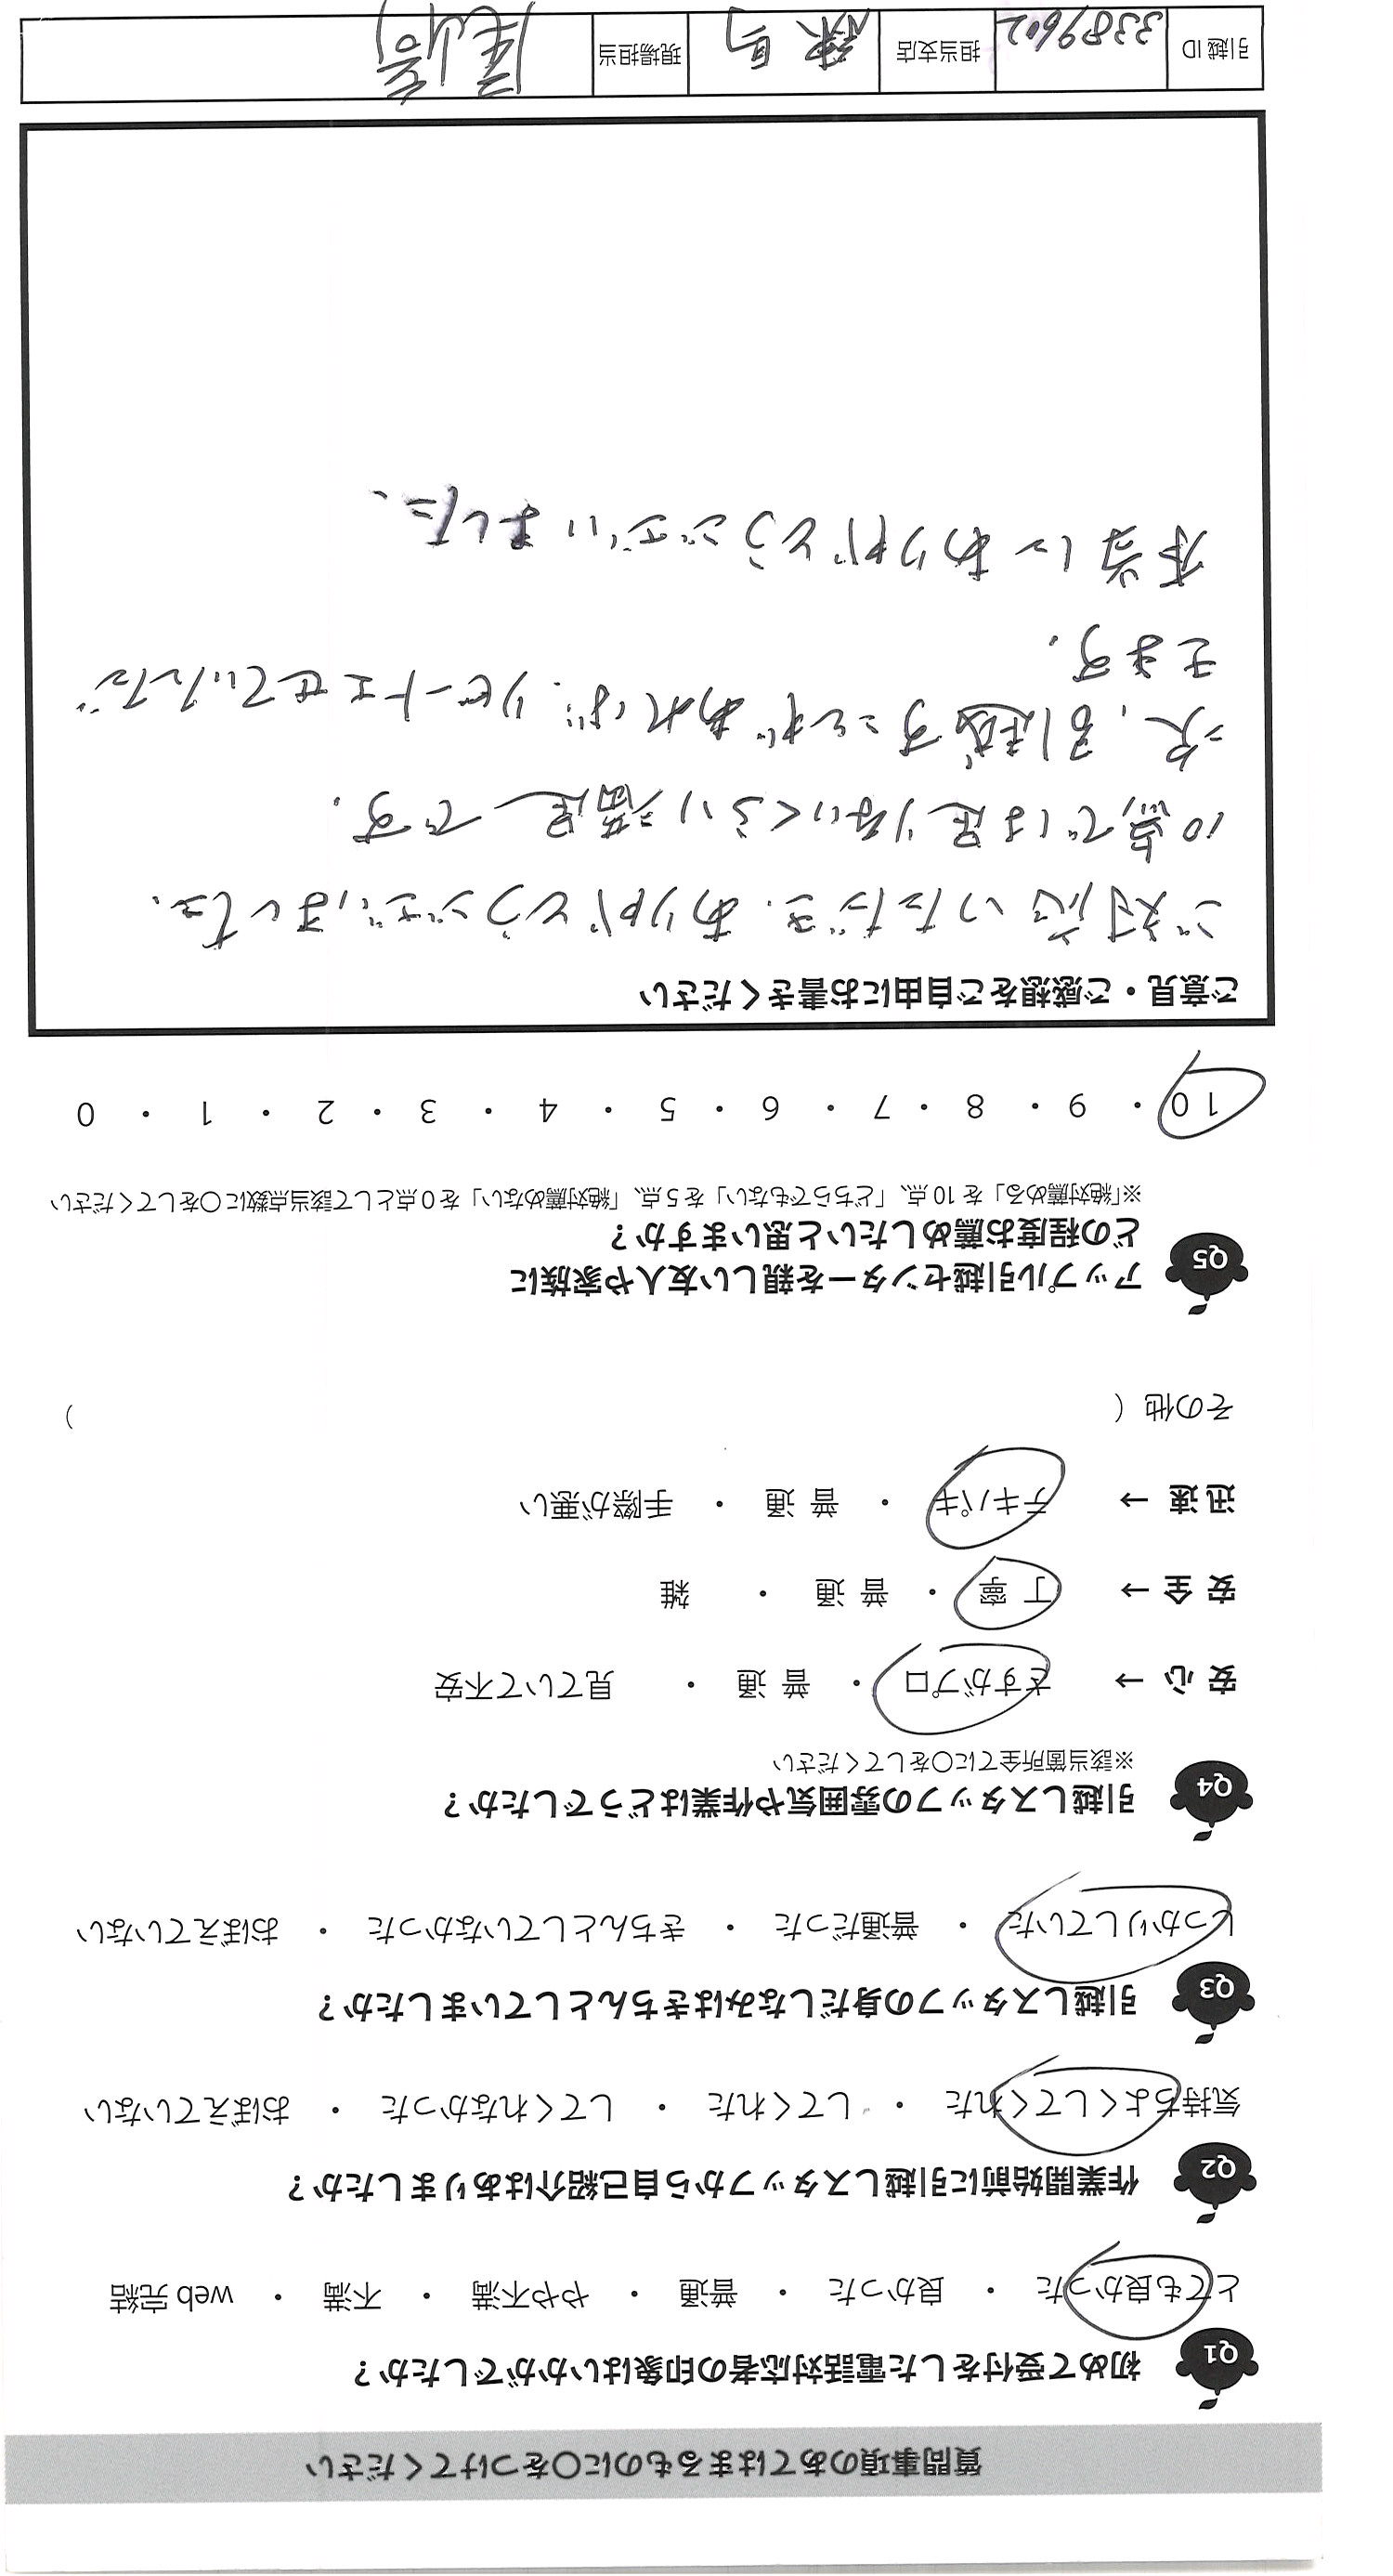 質問事項のあてはまるものに〇をつけてください
Q1 初めて受付をした電話対応者の印象はいかがでしたか？
とても良かった ・ 良かった ・ 普通 ・ やや不満 ・ 不満 ・ web 完結
Q2 作業開始前に引越しスタッフから自己紹介はありましたか？
気持ちよくしてくれた ・ してくれた ・ してくれなかった ・ おぼえていない
Q3 引越しスタッフの身だしなみはきちんとしていましたか？
しっかりしていた ・ 普通だった ・ きちんとしていなかった ・ おぼえていない
Q4 引越しスタッフの雰囲気や作業はどうでしたか？
※該当箇所全てに〇をしてください
安 心 → さすがプロ ・ 普 通 ・ 見ていて不安
安 全 → 丁 寧 ・ 普 通 ・ 雑
迅 速 → テキパキ ・ 普 通 ・ 手際が悪い
その他（ ）
Q5 アップル引越センターを親しい友人や家族に
どの程度お薦めしたいと思いますか？
※「絶対薦める」を 10 点、「どちらでもない」を 5 点、「絶対薦めない」を 0 点として該当点数に〇をしてください
10 ・ 9 ・ 8 ・ 7 ・ 6 ・ 5 ・ 4 ・ 3 ・ 2 ・ 1 ・ 0
ご意見・ご感想をご自由にお書きください
ご対応いただき、ありがとうございました。
10点では足りないくらい満足です。
次、引越すことがあれば、リピートさせていただ
きます。
本当にありがとうございました。
引越 ID 3389602 担当支店 練馬 現場担当 尾崎